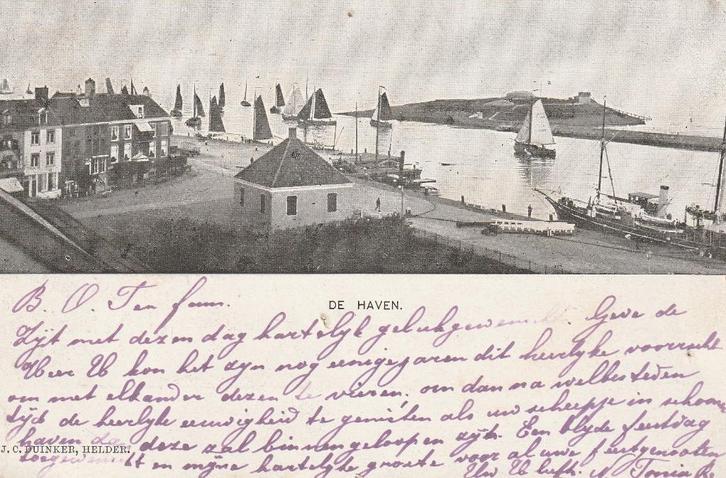 B. O. Ten fam.
DE HAVEN.
Zijt met dezen dag hartelijk gelukgewenscht. Geve de
Heer Ub kon het zijn nog eenige jaren dit heerlyke voorrecht
om met elkander dezen te vieren, om dan na welbesteden
tijd de heerlyke eeuwigheid te genieten als uw scheepje in schoone
haven deze zal binnengeloopen zijn. Een blyde feestdag
toegewenscht en mijne hartelyke groete voor al uwe feestgenooten
J. C. DUINKER, HELDER.
Uw Ub liefh. Tonia